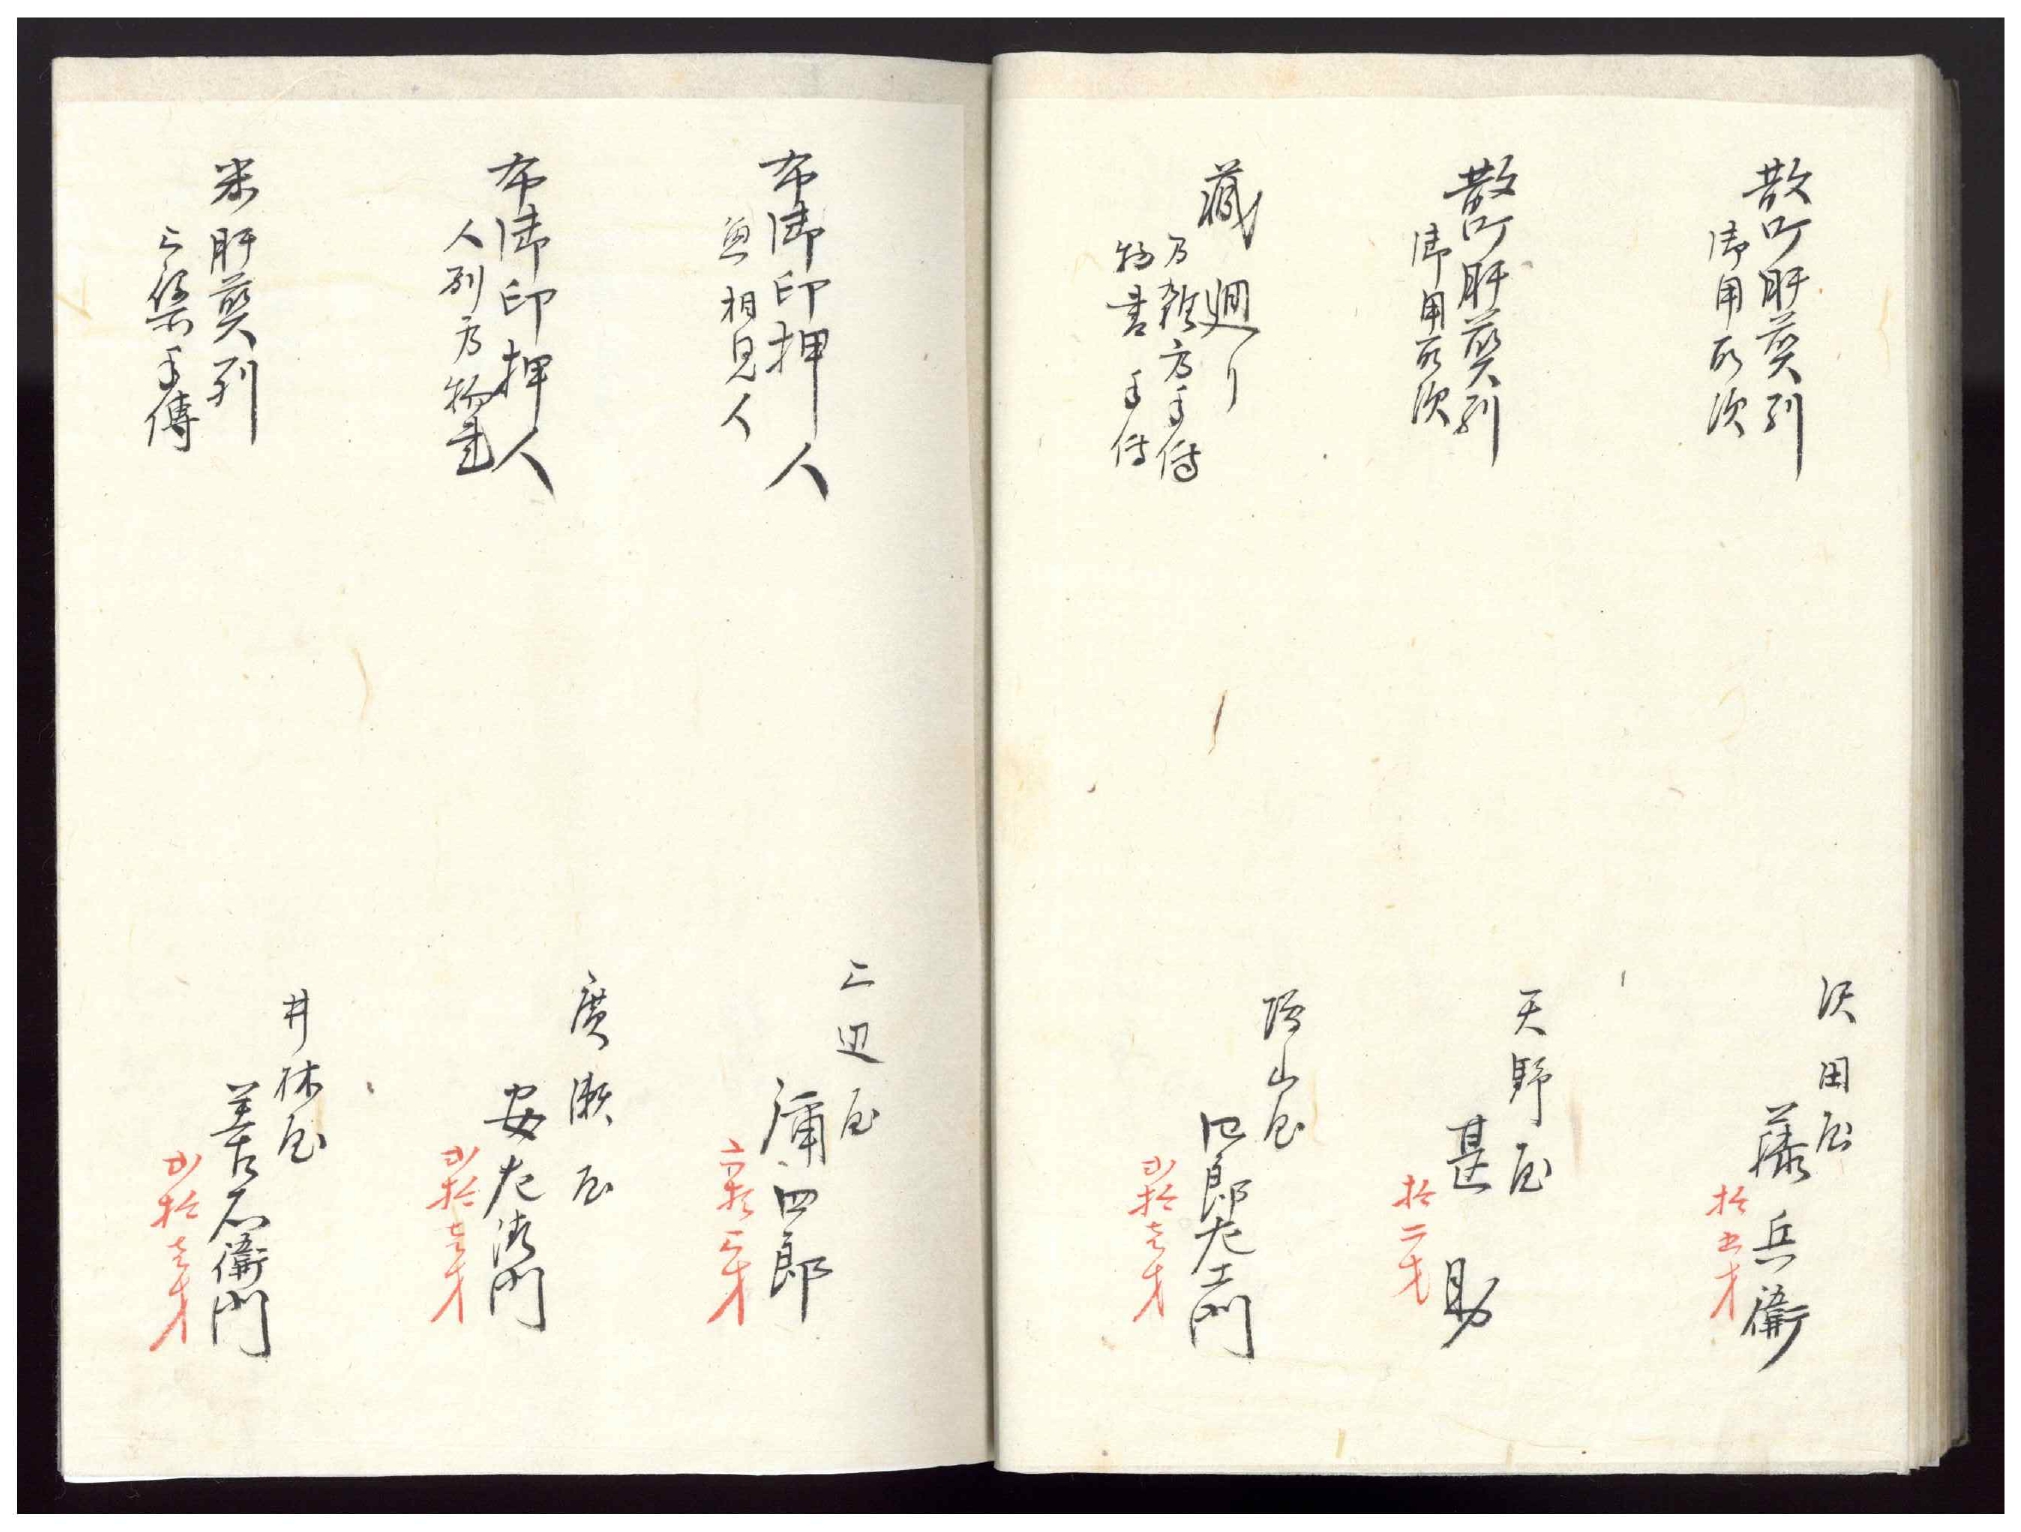 散町肝煎列
御用取次
沢田屋
藤兵衛
拾五才
散町肝煎列
御用取次
天野屋
甚助
拾二才
蔵廻り
乃雑方手傳
物書手傳
山屋
四郎左エ門
弐拾壱才
布御印押人
魚相見人
三辺屋
彌四郎
六拾三才
布御印押人
人別方物書
廣瀬屋
安左衛門
弐拾壱才
米肝煎列
手傳
井林屋
善右衛門
弐拾壱才